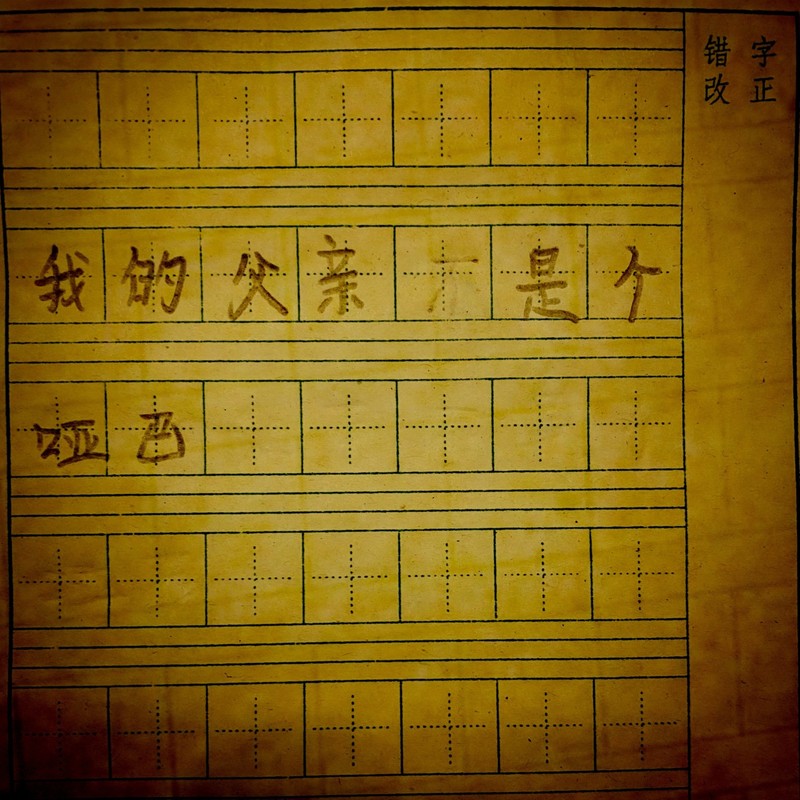 错字
改正
我的父亲不是个
哑巴